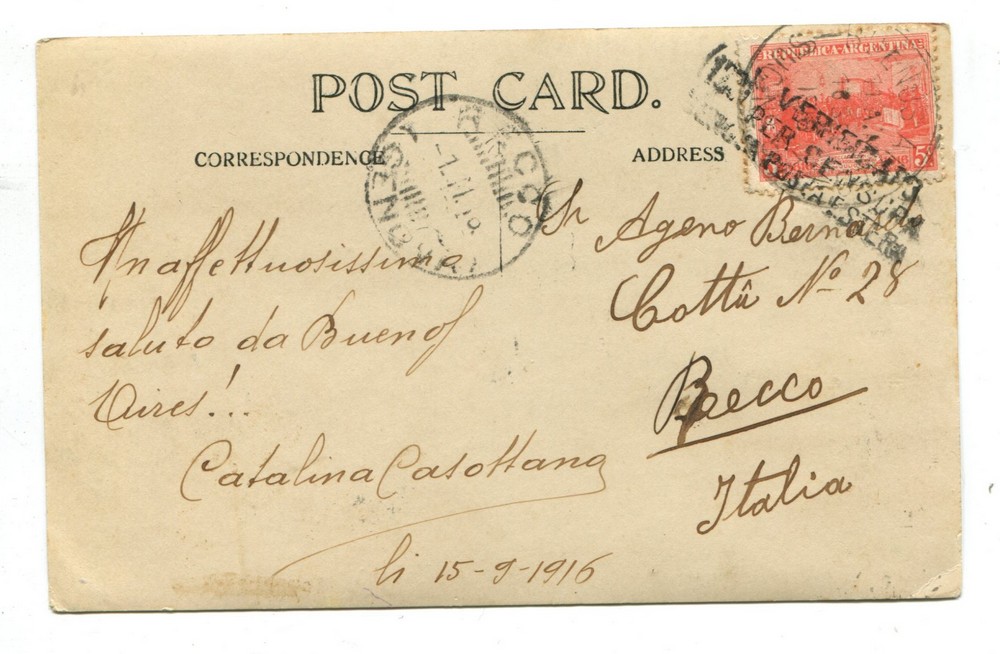 POST CARD.
CORRESPONDENCE
ADDRESS
REPUBLICA ARGENTINA
5
VERIFICATO
PER CENSURA
RECCO
Un affettuosissimo
saluto da Buenos
Aires!...
Catalina Casottana
li 15-9-1916
Sr Ageno Bernardo
Cottû No 28
Recco
Italia